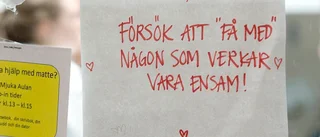 FÖRSÖK ATT "FÅ MED"
NÅGON SOM VERKAR
VARA ENSAM!
a hjälp med matte?
Mjuka Aulan
o-in tider
kl.13 – kl.15